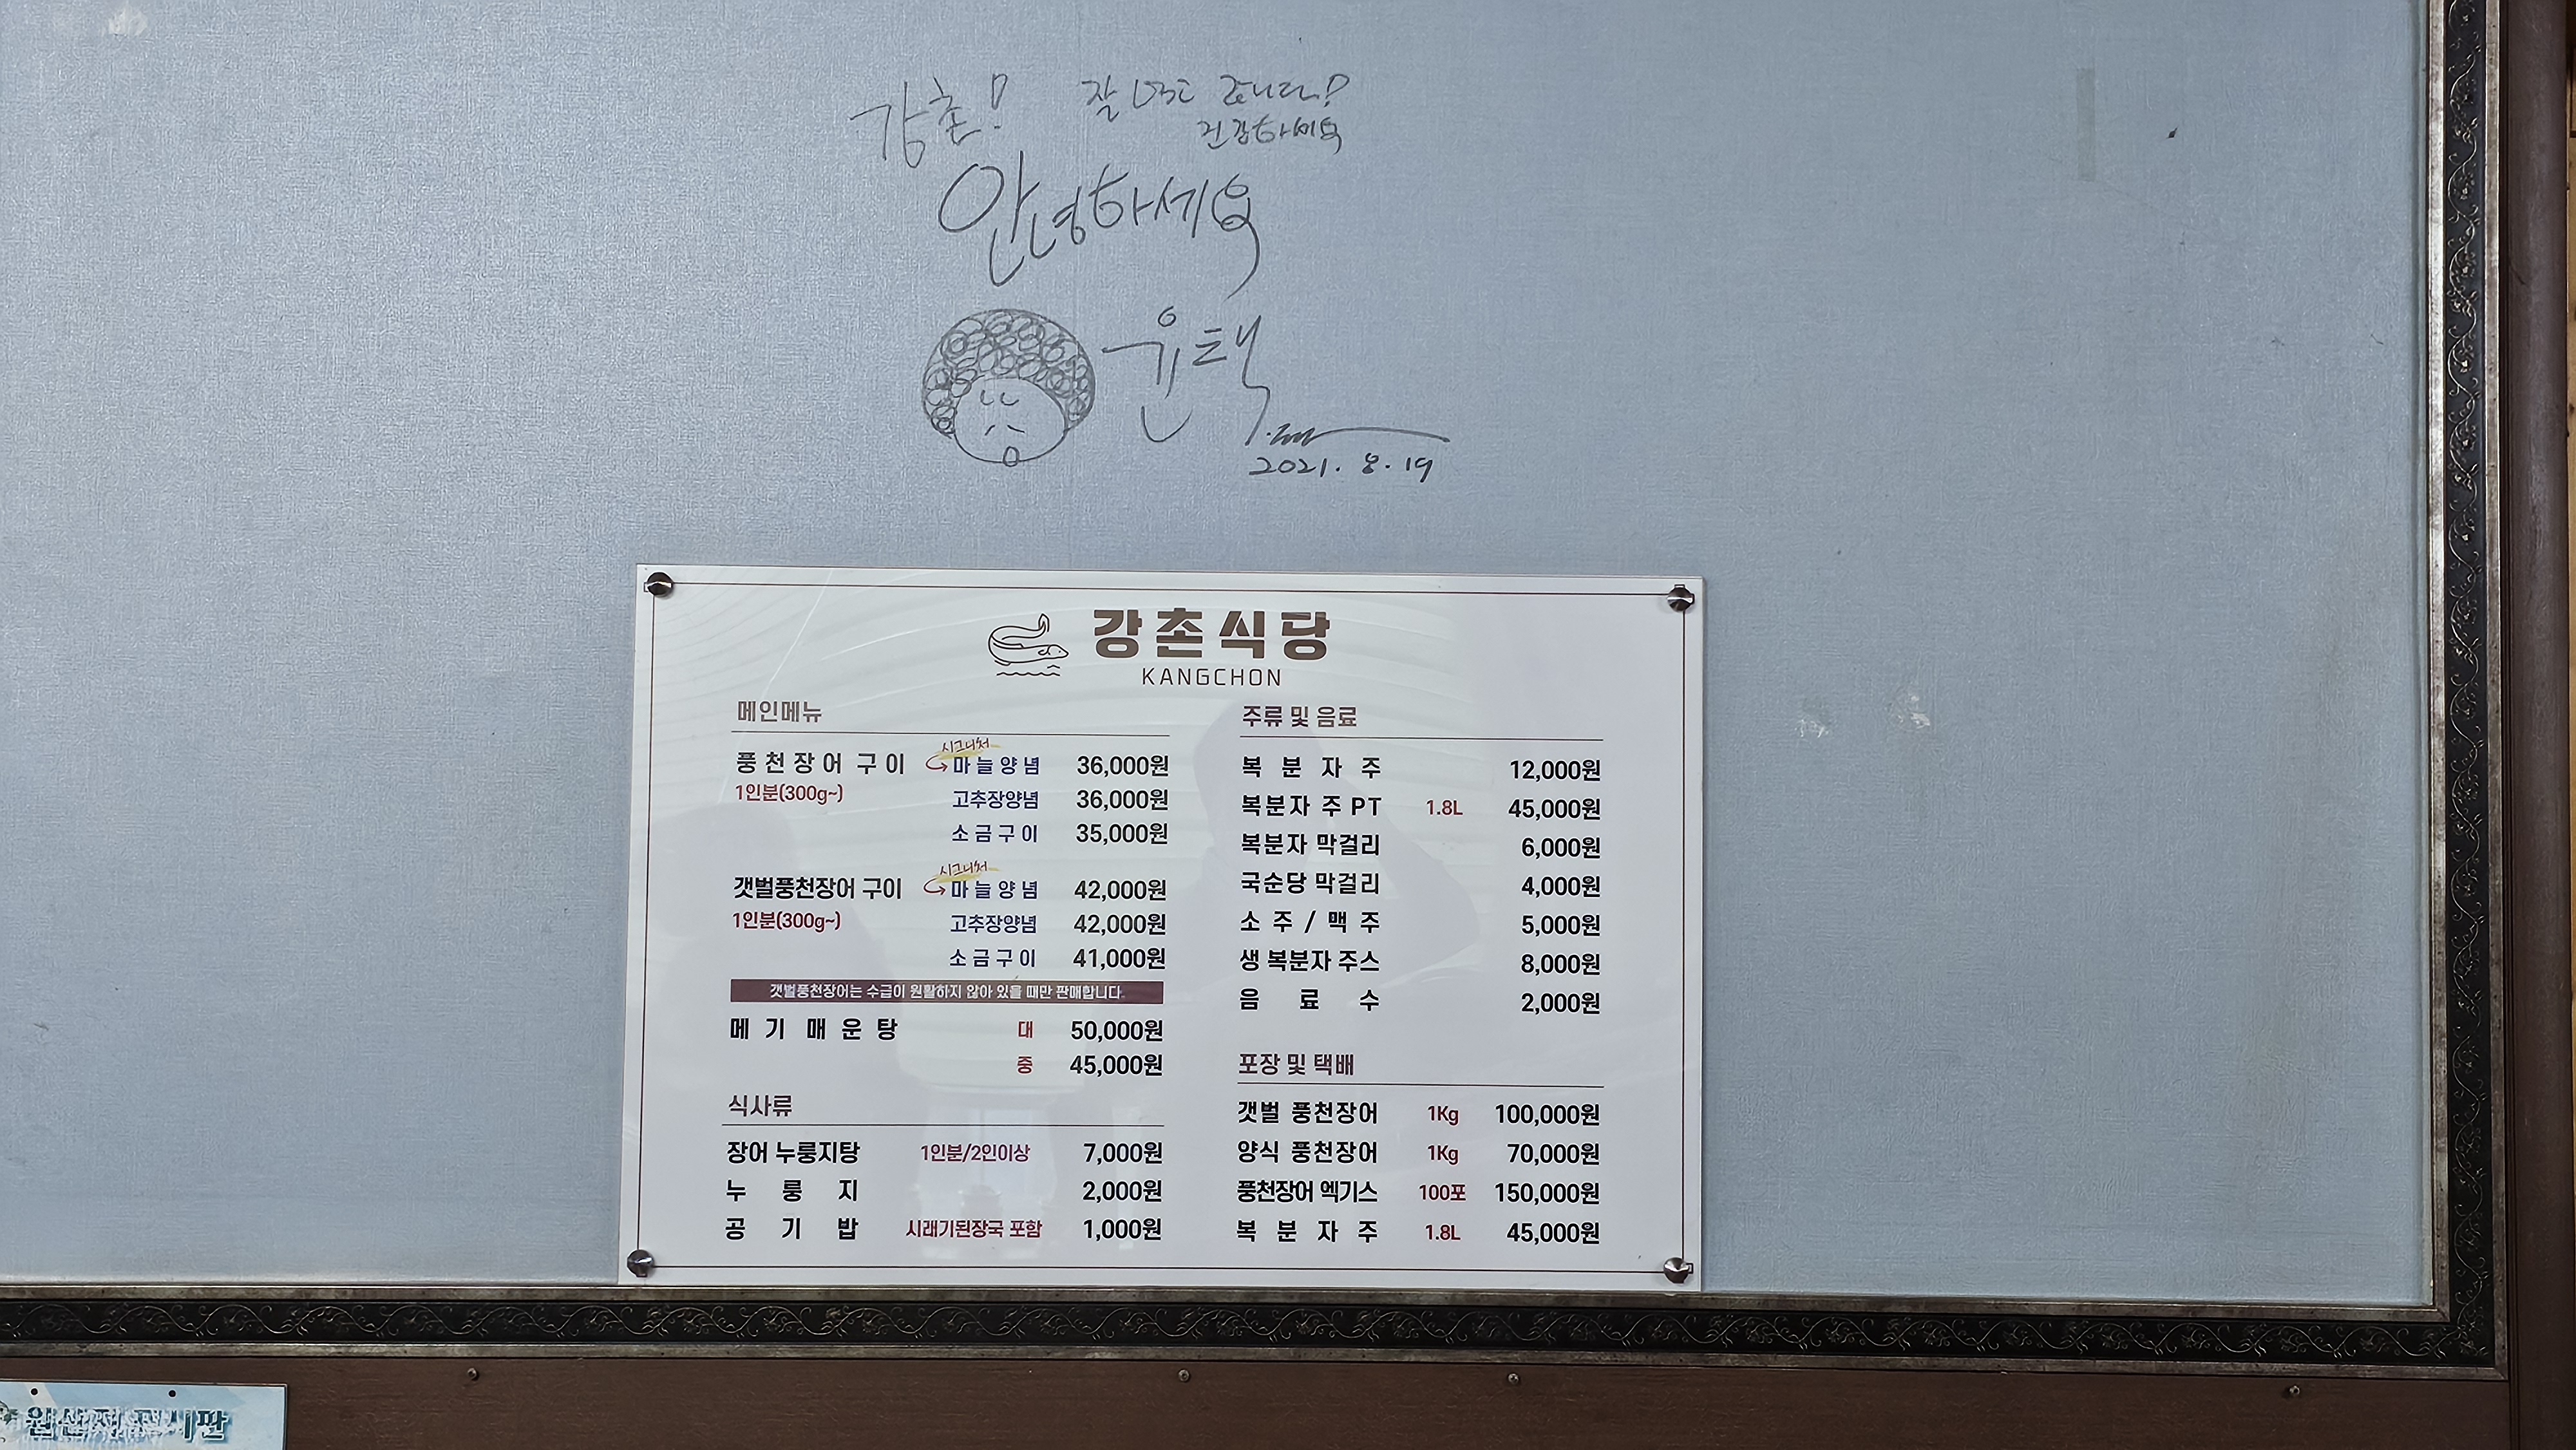 강촌! 잘 먹고 갑니다!
건강하세요
안녕하세요
윤택
2021. 8. 19
강촌식당
KANGCHON
메인메뉴
풍천장어 구이 시그니처 마늘양념 36,000원
1인분(300g~) 고추장양념 36,000원
소금구이 35,000원
갯벌풍천장어 구이 시그니처 마늘양념 42,000원
1인분(300g~) 고추장양념 42,000원
소금구이 41,000원
갯벌풍천장어는 수급이 원활하지 않아 있을 때만 판매합니다.
메기 매운탕 대 50,000원
중 45,000원
식사류
장어 누룽지탕 1인분/2인이상 7,000원
누룽지 2,000원
공기밥 시래기된장국 포함 1,000원
주류 및 음료
복분자주 12,000원
복분자 주 PT 1.8L 45,000원
복분자 막걸리 6,000원
국순당 막걸리 4,000원
소주/맥주 5,000원
생 복분자 주스 8,000원
음료수 2,000원
포장 및 택배
갯벌 풍천장어 1Kg 100,000원
양식 풍천장어 1Kg 70,000원
풍천장어 엑기스 100포 150,000원
복분자주 1.8L 45,000원
원산지 표시판